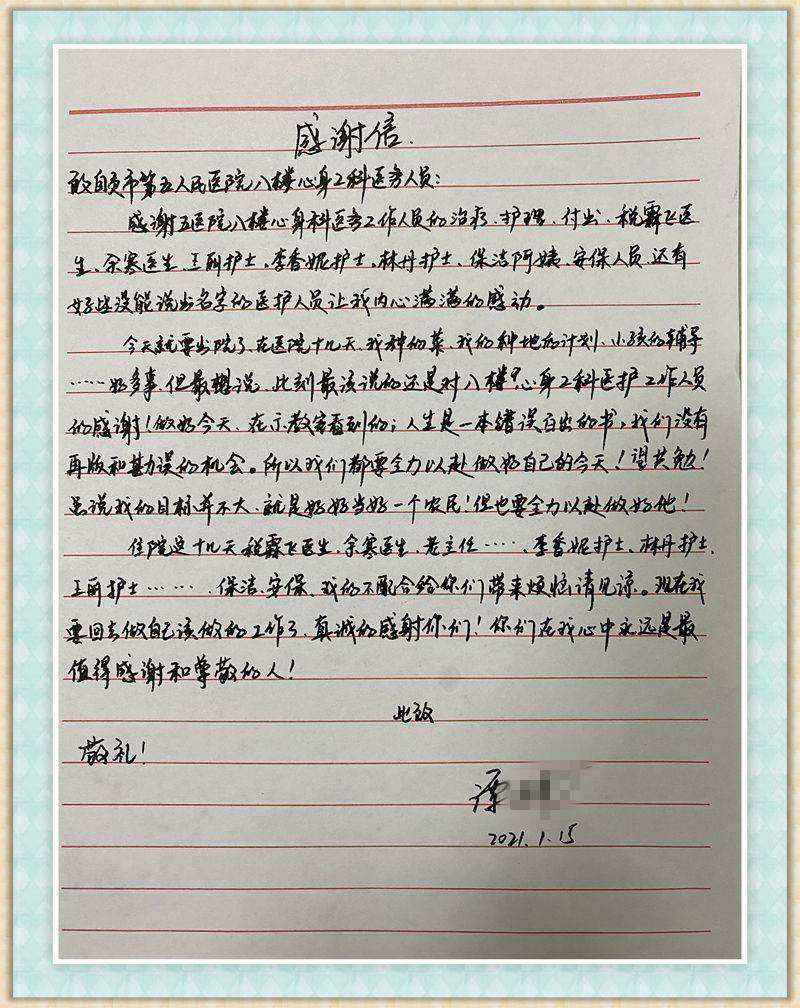 感谢信.
致自贡市第五人民医院八楼心身2科医务人员:
感谢五医院八楼心身科医务工作人员的治疗、护理、付出、税霖飞医
生、余寒医生、王丽护士、李香妮护士、林丹护士、保洁阿姨、安保人员、还有
好些没能说出名字的医护人员让我内心满满的感动。
今天就要出院了、在医院十几天、我种的菜、我的种地的计划、小孩的辅导
……好多事、但最想说、此刻最该说的还是对八楼心身2科医护工作人员
的感谢!做好今天、在示教室看到的;人生是一本错误百出的书,我们没有
再版和勘误的机会。所以我们都要全力以赴做好自己的今天!望共勉!
总说我的目标并不大、就是好好当好一个农民!但也要全力以赴做好他!
住院这十几天税霖飞医生、余寒医生、老主任……、李香妮护士、林丹护士、
王丽护士……、保洁、安保、我的不配合给你们带来烦恼请见谅。现在我
要回去做自己该做的工作了、真诚的感谢你们!你们在我心中永远是最
值得感谢和尊敬的人!
此致
敬礼!
谭
2021.1.15